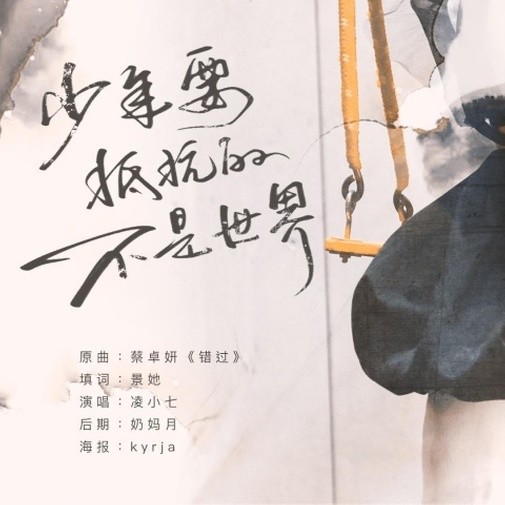 少年要
抵抗的
不是世界
原曲：蔡卓妍《错过》
填词：景她
演唱：凌小七
后期：奶妈月
海报：kyrja